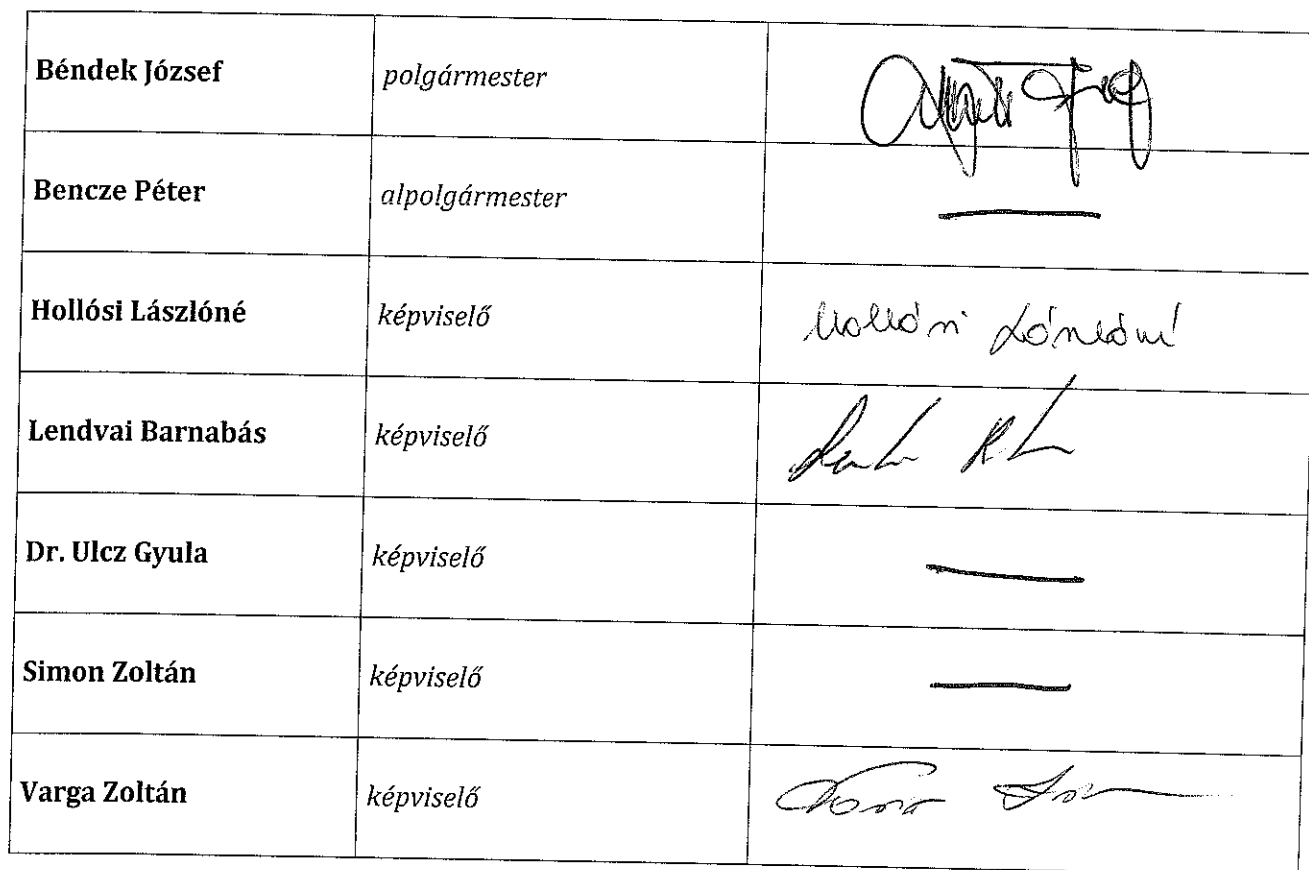 Béndek József polgármester
Bencze Péter alpolgármester
Hollósi Lászlóné képviselő Hollósi Lászlóné
Lendvai Barnabás képviselő
Dr. Ulcz Gyula képviselő
Simon Zoltán képviselő
Varga Zoltán képviselő